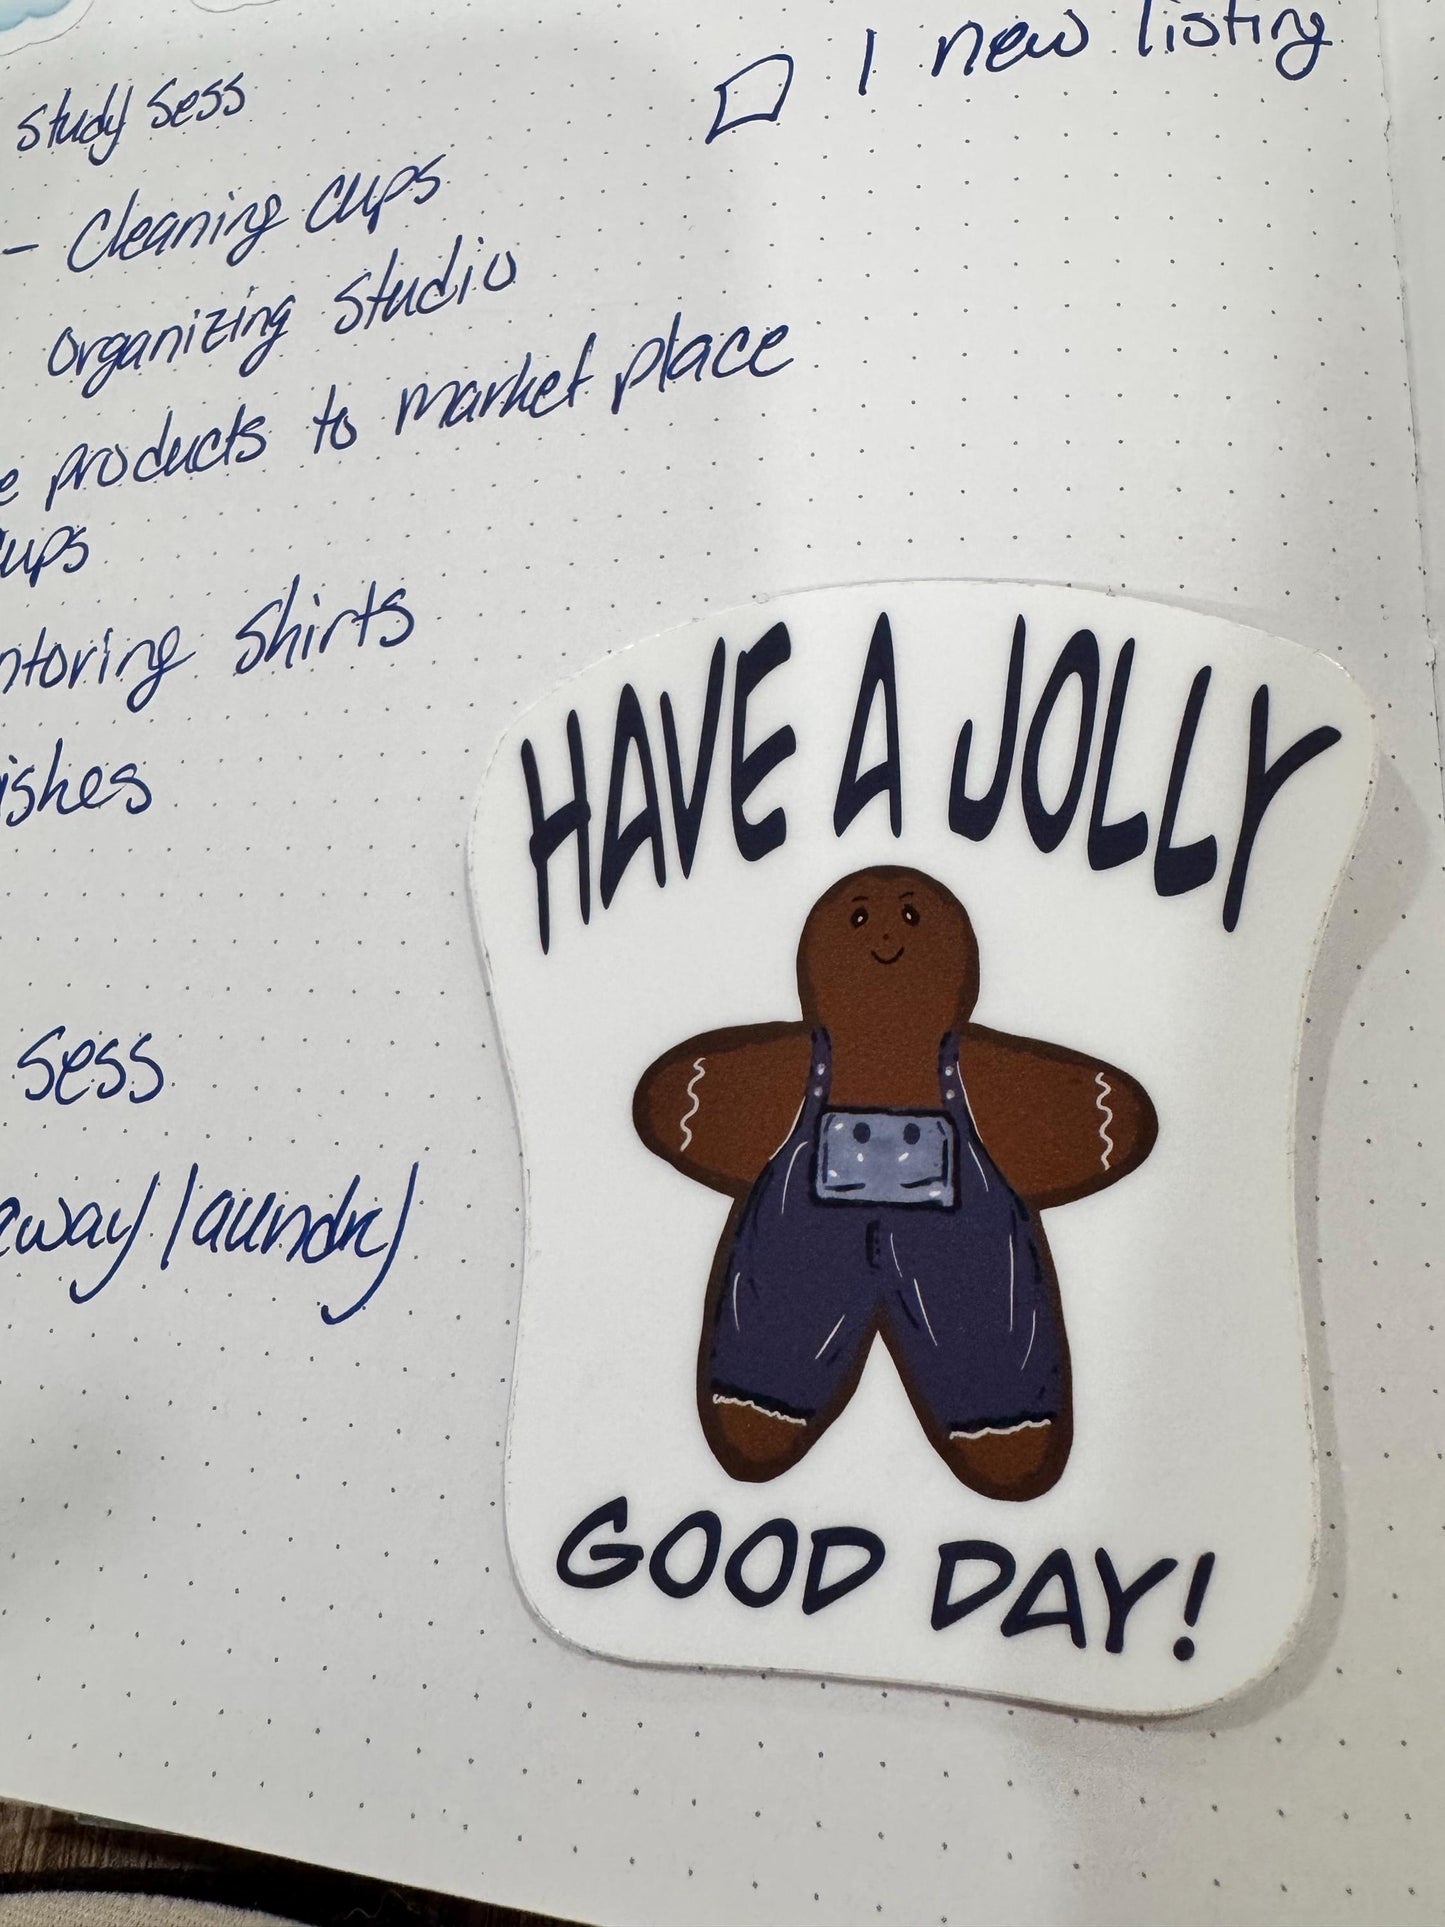 1 new listing
study sess
- Cleaning cups
organizing studio
products to market place
cups
shirts
sess
away/laundry
HAVE A JOLLY
GOOD DAY!